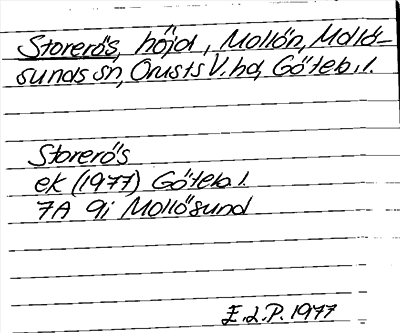 Storerös, höjd, Mollön, Mollö-
sunds sn, Orusts V. hd, Göteb. l.
Storerös
ek (1977) Göteb. l.
7A 9i Mollösund
E.L.P. 1977